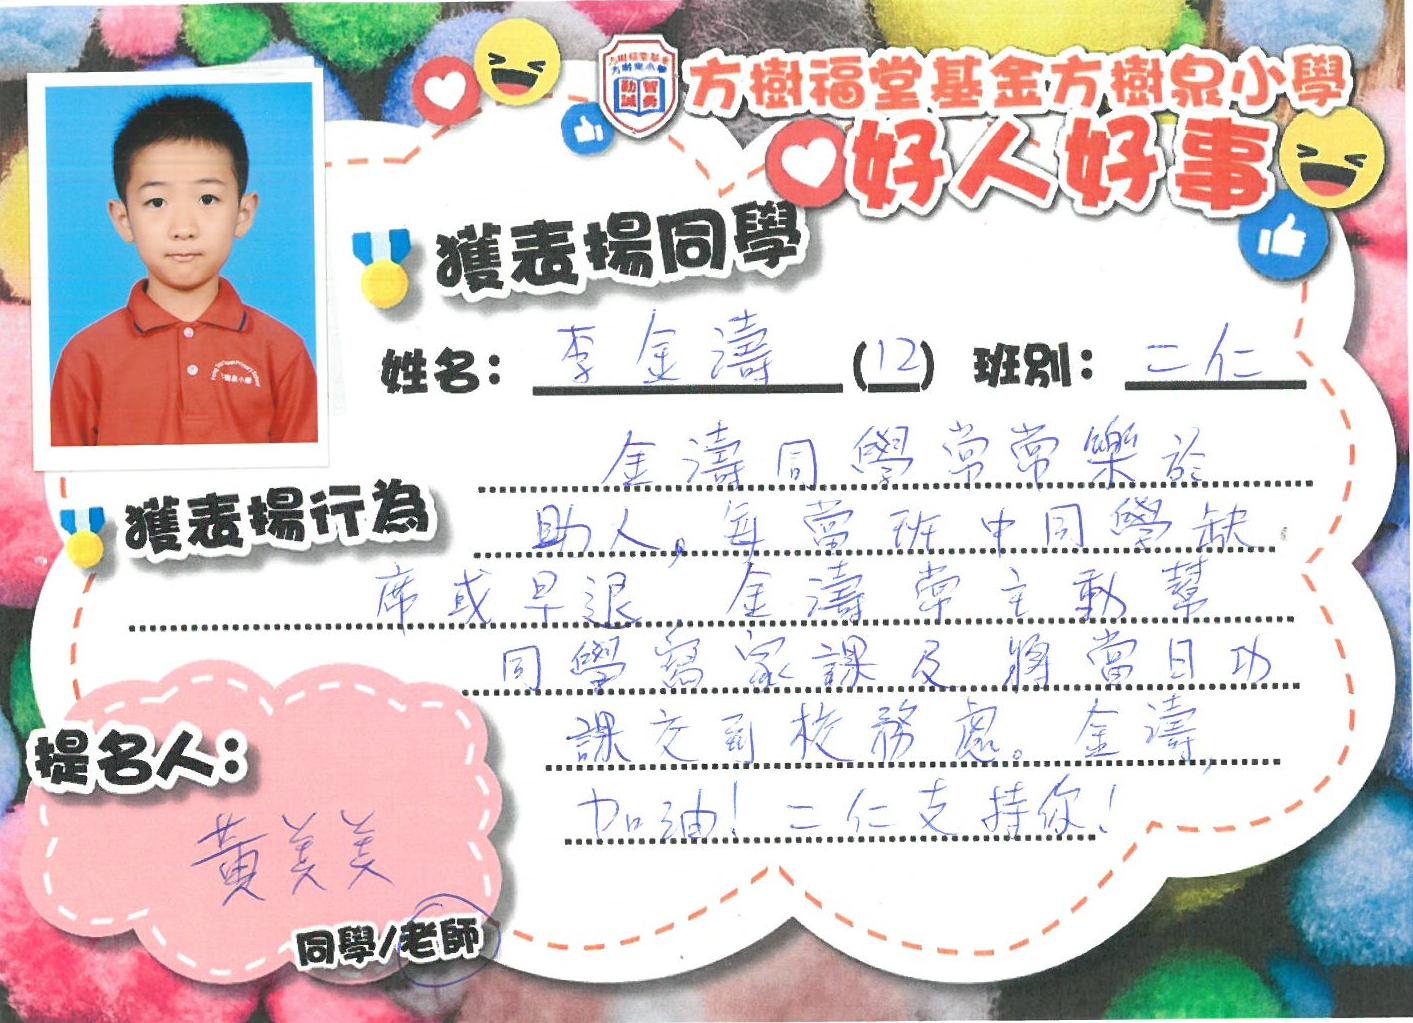 方樹福堂基金方樹泉小學
好人好事
獲表揚同學
姓名：李金濤(12) 班別：二仁
獲表揚行為
金濤同學常常樂於
助人，每當班中同學缺
席或早退，金濤常主動幫
同學寫家課及將當日功
課交到校務處。金濤，
加油！二仁支持你！
提名人：
黃美美
同學/老師